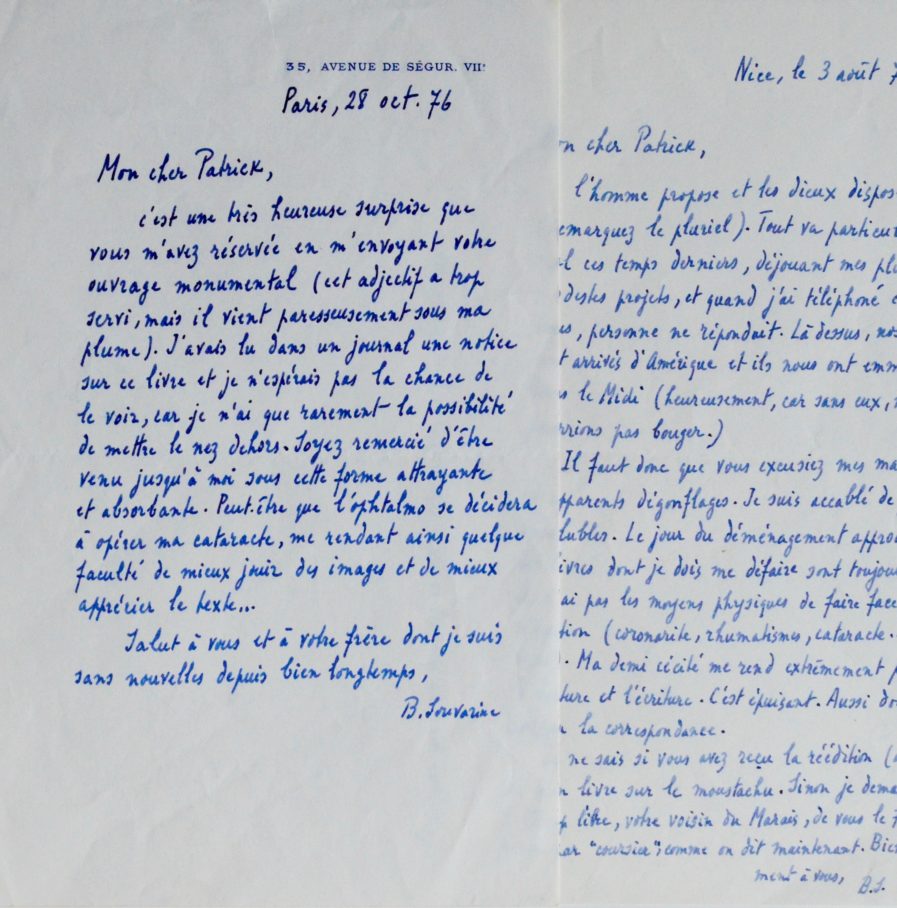 35, AVENUE DE SÉGUR. VIIe
Paris, 28 oct. 76
Mon cher Patrick,
c'est une très heureuse surprise que
vous m'avez réservée en m'envoyant votre
ouvrage monumental (cet adjectif a trop
servi, mais il vient paresseusement sous ma
plume). J'avais lu dans un journal une notice
sur ce livre et je n'espérais pas la chance de
le voir, car je n'ai que rarement la possibilité
de mettre le nez dehors. Soyez remercié d'être
venu jusqu'à moi sous cette forme attrayante
et absorbante. Peut-être que l'ophtalmo se décidera
à opérer ma cataracte, me rendant ainsi quelque
faculté de mieux jouir des images et de mieux
apprécier le texte...
Salut à vous et à votre frère dont je suis
sans nouvelles depuis bien longtemps,
B. Souvarine
Nice, le 3 août 7
on cher Patrick,
l'homme propose et les dieux dispos
emarquez le pluriel). Tout va particu
l ces temps derniers, déjouant mes pl
destes projets, et quand j'ai téléphoné
s, personne ne répondait. Là dessus, no
t arrivés d'Amérique et ils nous ont emm
s le Midi (heureusement, car sans eux,
rrions pas bouger.)
Il faut donc que vous excusiez mes ma
pparents dégonflages. Je suis accablé de
lubles. Le jour du déménagement appro
ivres dont je dois me défaire sont toujou
ai pas les moyens physiques de faire face
tion (coronarite, rhumatismes, cataracte.
). Ma demi cécité me rend extrêmement p
ture et l'écriture. C'est épuisant. Aussi do
la correspondance.
ne sais si vous avez reçu la réédition (
n livre sur le moustachu. Sinon je dema
p libre, votre voisin du Marais, de vous le
par "coursier", comme on dit maintenant. Bie
ment à vous, B.S.